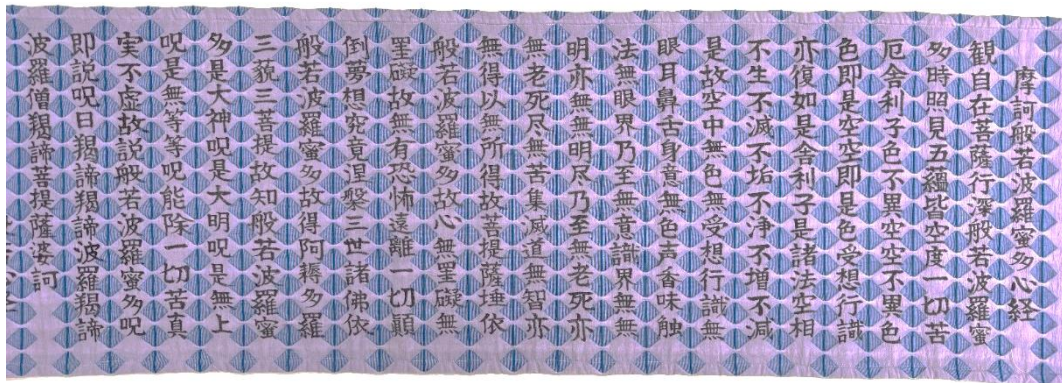 摩訶般若波羅蜜多心経
観自在菩薩行深般若波羅蜜
多時照見五蘊皆空度一切苦
厄舎利子色不異空空不異色
色即是空空即是色受想行識
亦復如是舎利子是諸法空相
不生不滅不垢不浄不増不減
是故空中無色無受想行識無
眼耳鼻舌身意無色声香味触
法無眼界乃至無意識界無無
明亦無無明尽乃至無老死亦
無老死尽無苦集滅道無智亦
無得以無所得故菩提薩埵依
般若波羅蜜多故心無罣礙無
罣礙故無有恐怖遠離一切顛
倒夢想究竟涅槃三世諸佛依
般若波羅蜜多故得阿耨多羅
三藐三菩提故知般若波羅蜜
多是大神呪是大明呪是無上
呪是無等等呪能除一切苦真
実不虚故説般若波羅蜜多呪
即説呪曰羯諦羯諦波羅羯諦
波羅僧羯諦菩提薩婆訶